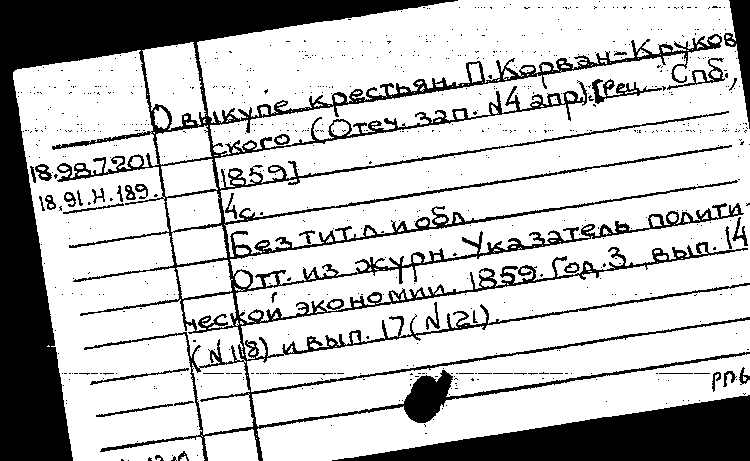 О выкупе крестьян. П. Корван-Круков
ского. (Отеч. зап. №4 апр.) [Рец. Спб.,
18.98.7.201
1859].
18.91.Н.189.
4с.
Без тит. л. и обл.
Отт. из журн. Указатель полити-
ческой экономии. 1859. Год 3, вып. 14
(№118) и вып. 17 (№121).